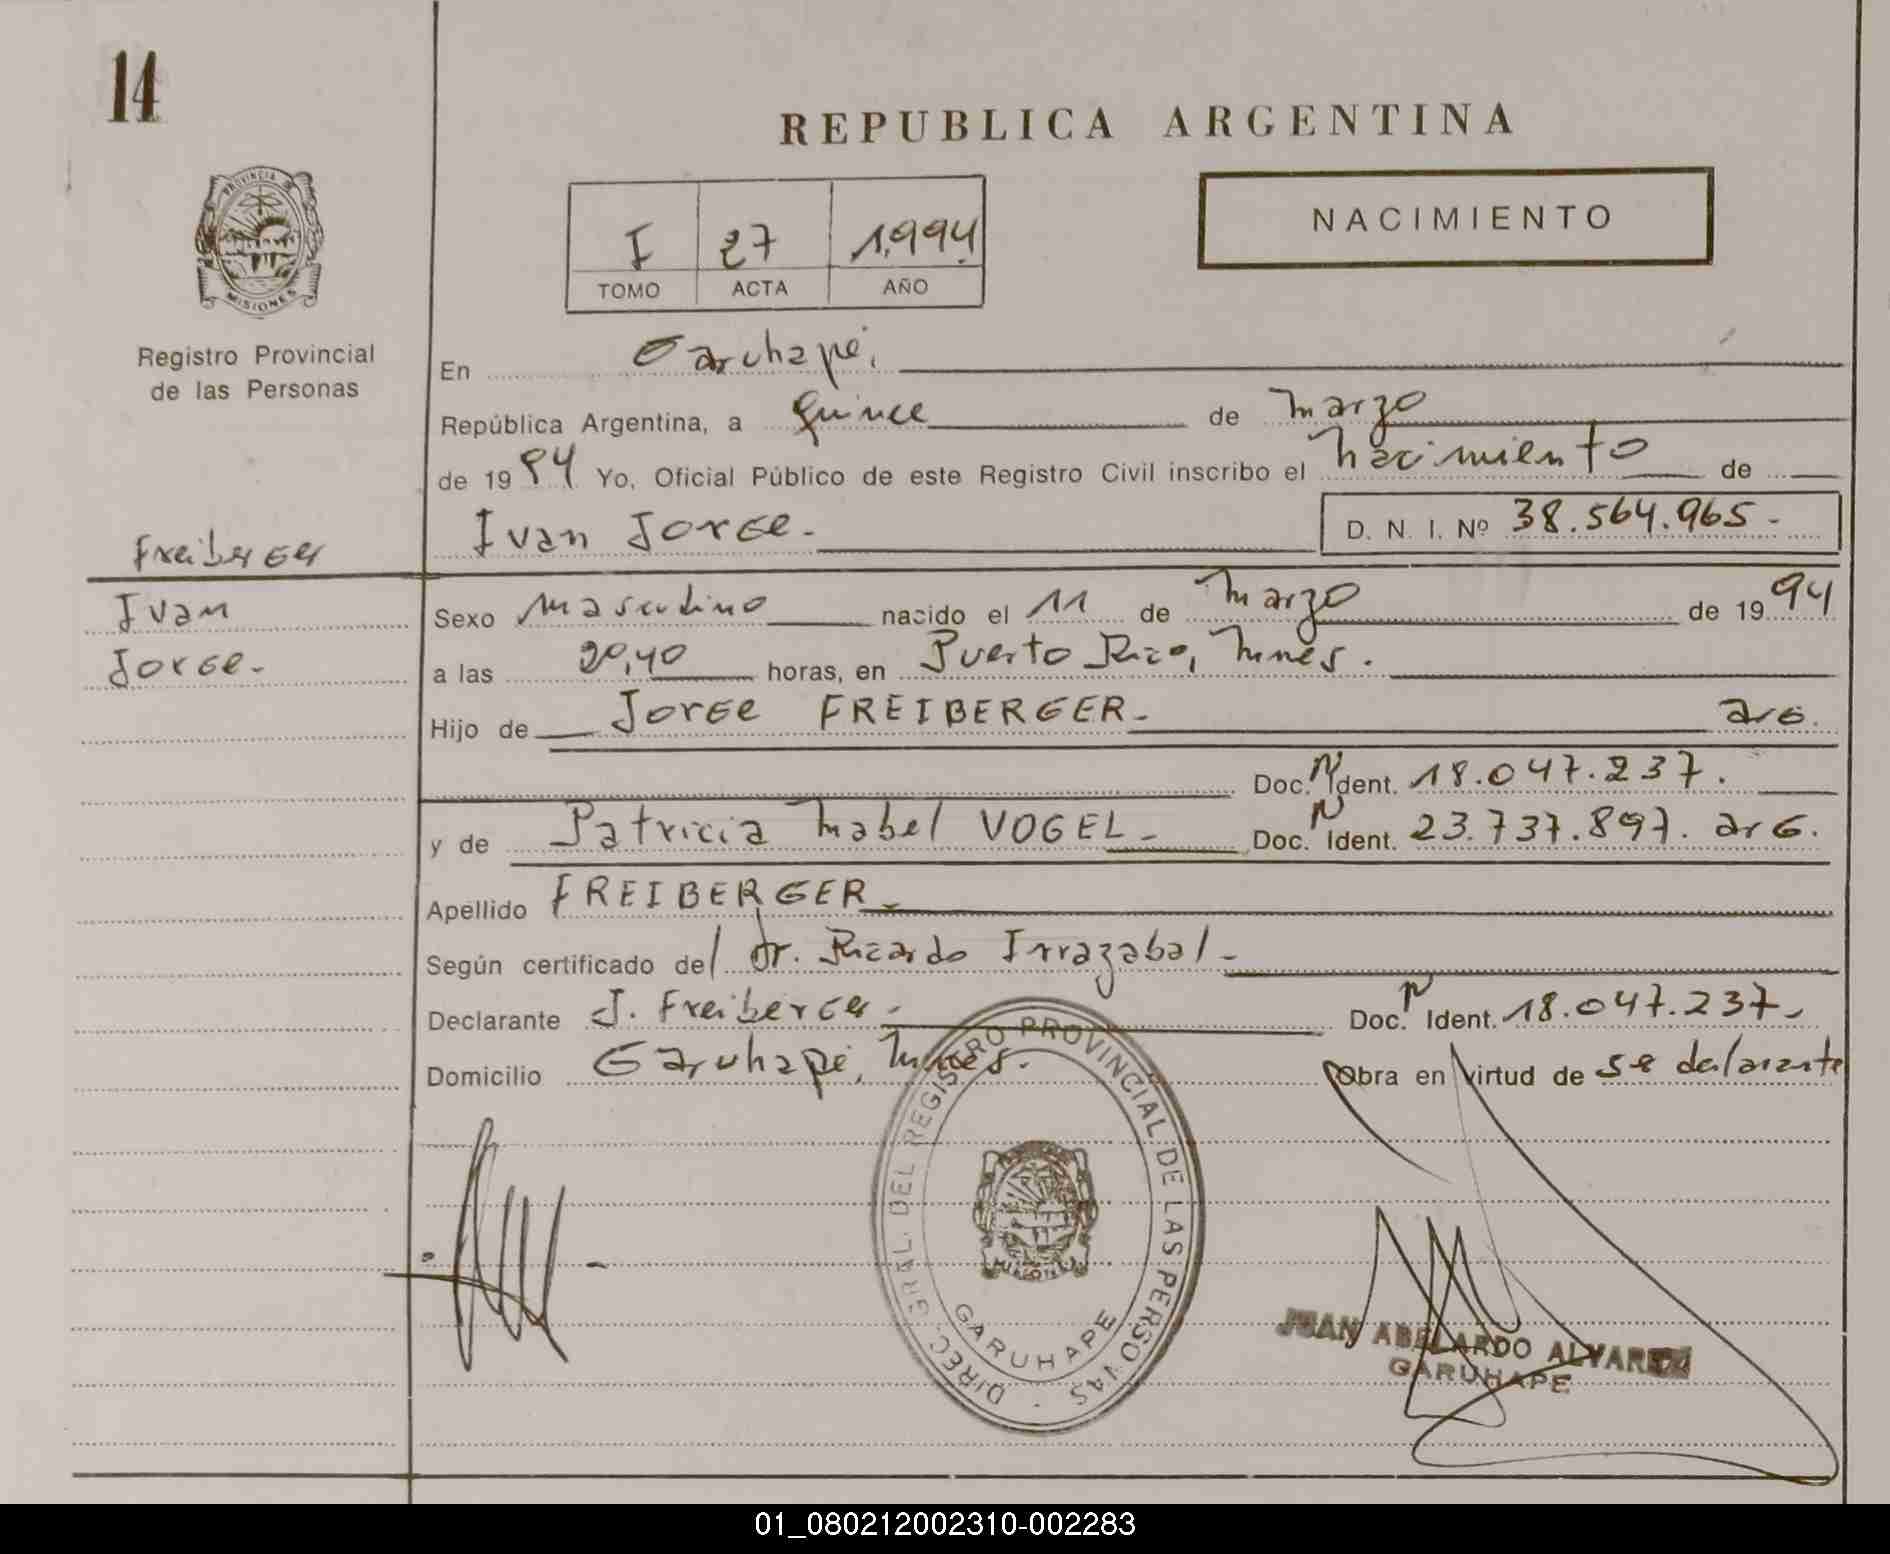 14
REPUBLICA ARGENTINA
PROVINCIA DE
MISIONES
I 27 1.994
TOMO ACTA AÑO
NACIMIENTO
Registro Provincial
de las Personas
En Garuhapé,
República Argentina, a quince de marzo
de 1994 Yo, Oficial Público de este Registro Civil inscribo el nacimiento de
Ivan Jorge.- D. N. I. Nº 38.564.965-
Freiberger
Ivan
Jorge.-
Sexo masculino nacido el 11 de marzo de 1994
a las 20,40 horas, en Puerto Rico, Mnes.
Hijo de Jorge FREIBERGER- arg.
Doc. N Ident. 18.047.237.
y de Patricia Mabel VOGEL- Doc. N Ident. 23.737.897. arg.
Apellido FREIBERGER-
Según certificado del dr. Ricardo Irrazabal-
Declarante J. Freiberger- Doc. N Ident. 18.047.237-
Domicilio Garuhapé, Mnes. Obra en virtud de ser declarante
DIREC. GRAL. DEL REGISTRO PROVINCIAL DE LAS PERSONAS
GARUHAPE
JUAN ABELARDO ALVAREZ
GARUHAPE
01_080212002310-002283